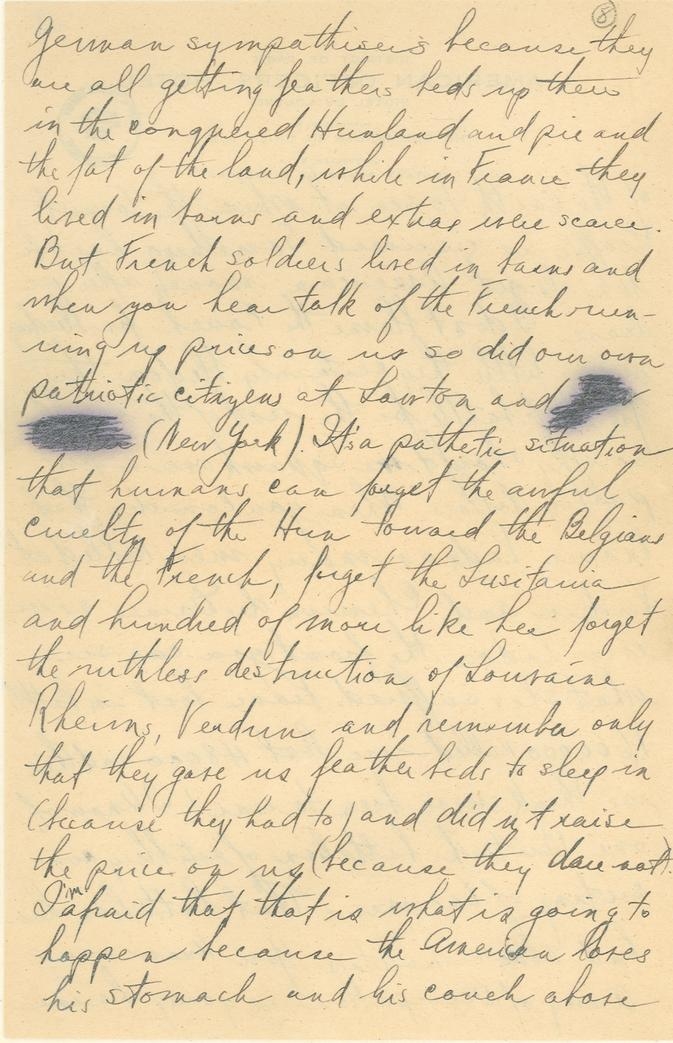 8
German sympathisers because they
are all getting feathers beds up there
in the conquered Hunland and pie and
the fat of the land, while in France they
lived in barns and extras were scarce.
But French soldiers lived in barns and
when you hear talk of the French run-
ning up prices on us so did our own
patriotic citizens at Lawton and
(New York). It's a pathetic situation
that humans can forget the awful
cruelty of the Hun toward the Belgians
and the French, forget the Lusitania
and hundred of more like her forget
the ruthless destruction of Louvaine
Rheims, Verdun and remember only
that they gave us feather beds to sleep in
(because they had to) and didn't raise
the price on us (because they dare not).
I'm afraid that that is what is going to
happen because the American loves
his stomach and his couch above